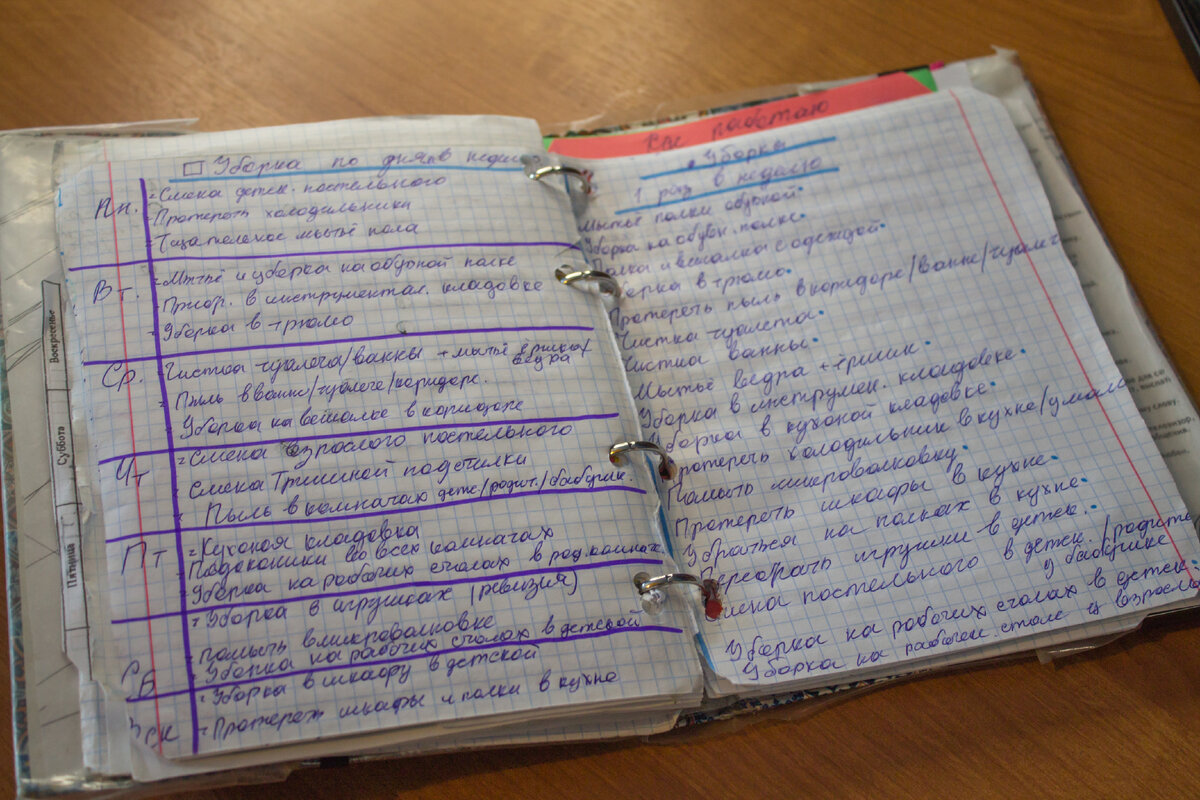 Уборка по дням недели
Пн.
- Смена детск. постельного
- Протереть холодильники
- Тщательное мытьё пола
Вт.
- Мытьё и уборка на обувной полке
- Прибор. в инструментал. кладовке
- Уборка в трюмо
Ср.
- Чистка туалета/ванны + мытьё ёршика/ведра
- Пыль в ванне/туалете/коридоре.
- Уборка на вешалке в коридоре
Чт
- Смена взрослого постельного
- Смена Тришиной подстилки
- Пыль в комнатах детс/родит./бабушк.
Пт
- Кухоная кладовка
- Подоконники во всех комнатах
- Уборка на рабочих столах в род. комнате
Сб
- Уборка в игрушках (ревизия)
- Помыть в микроволновке
- Уборка на рабочих столах в детской
Вск
- Уборка в шкафу в детской
- Протереть шкафы и полки в кухне
работаю
Уборки
1 раз в неделю
Мытьё полки обувной.
Уборка на обувн. полке.
Полка и вешалка с одеждой.
Уборка в трюмо.
Протереть пыль в коридоре/ванне/туалет
Чистка туалета.
Чистка ванны.
Мытьё ведра + ёршик.
Уборка в инструмен. кладовке.
Уборка в кухоной кладовке.
Протереть холодильник в кухне/у мал
Помыть микроволновку.
Протереть шкафы в кухне.
Убраться на полках в кухне.
Перебрать игрушки в детск.
Смена постельного в детск./родите
у бабушке
Уборка на рабочих столах в детск.
Уборка на рабочем столе у взросл
Воскресенье
Суббота
Пятница